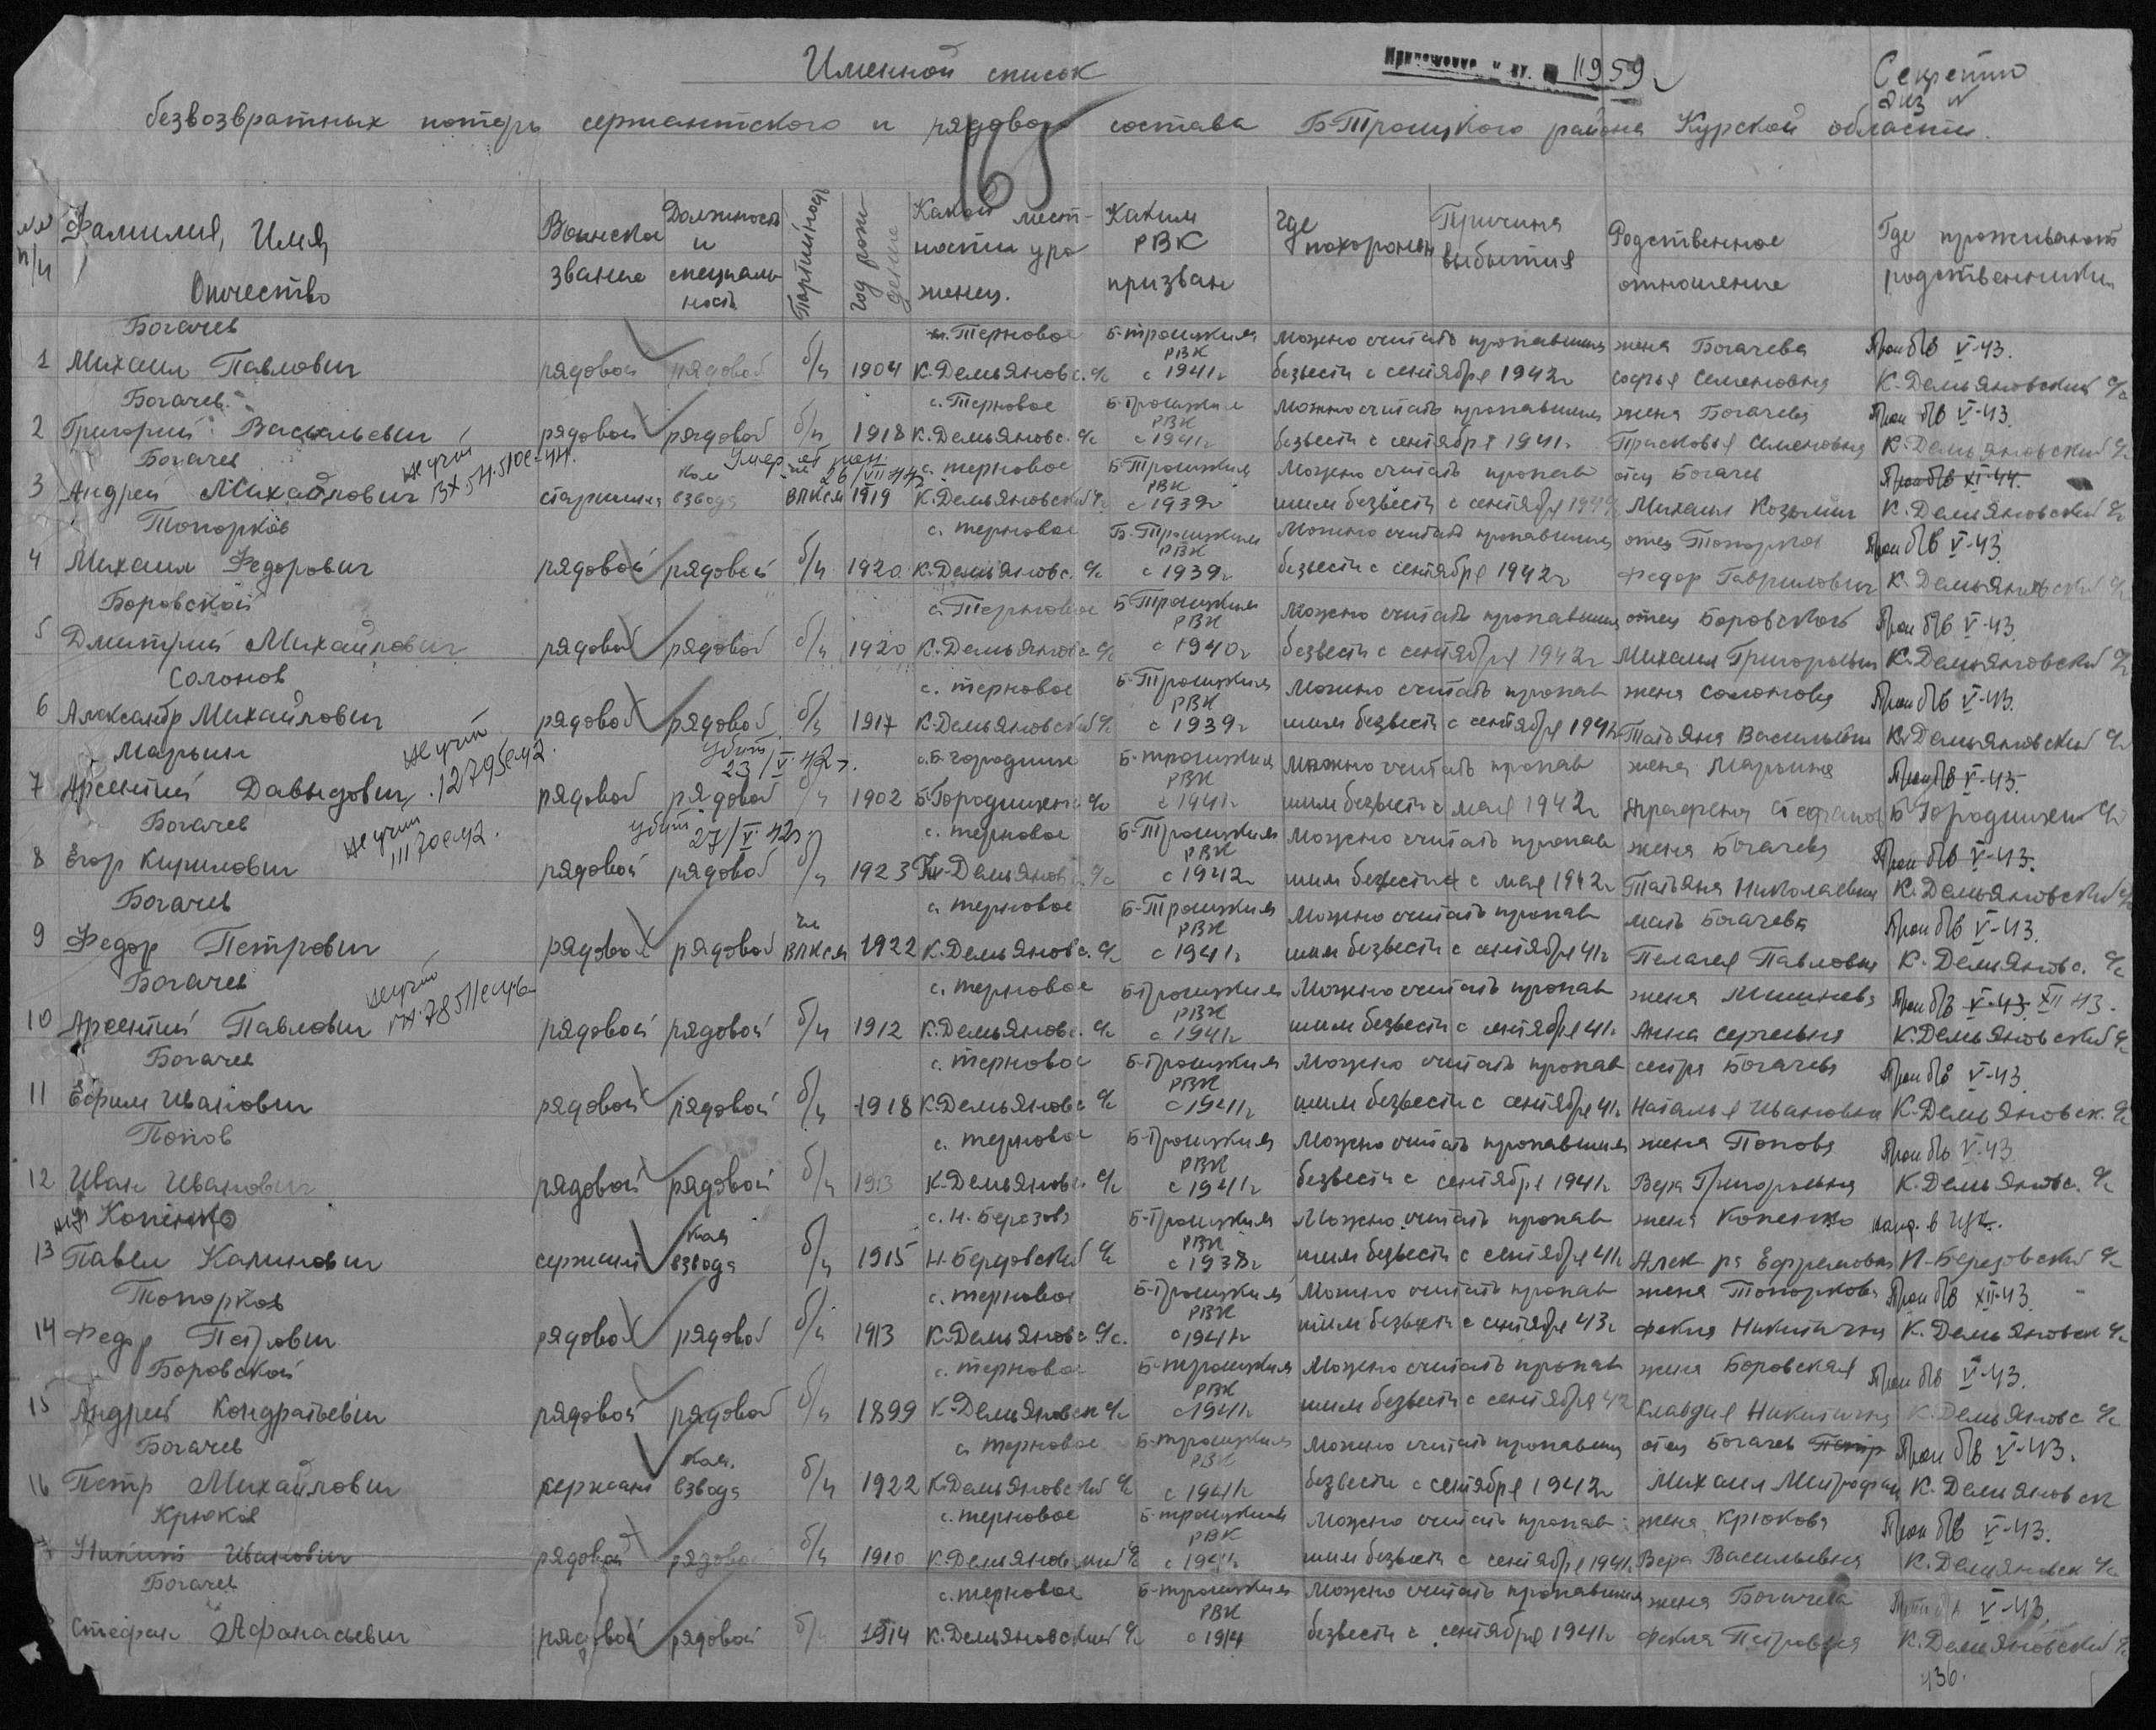 Именной список
Приложение к вх. 11959г
Секретно
экз N
безвозвратных потерь сержантского и рядового состава Б-Троицкого района Курской области.
165
NN п/п
Фамилия, Имя Отчество
Воинское звание
Должность и специальность
Партийность
год рождения
Какой местности уроженец.
Каким РВК призван
Где похоронен
Причина выбытия
Родственное отношение
Где проживают родственники
Богачев с. Терновое Б-троицким Можно считать пропавшим жена Богачева Проп б/в V-43.
1 Михаил Павлович рядовой рядовой б/п 1904 К.Демьяновс. с/с РВК с 1941г безвести с сентября 1942г Софья Семеновна К.Демьяновский с/с
Богачев с. Терновое Б-Троицким Можно считать пропавшим жена Богачева Проп б/в V-43.
2 Григорий Васильевич рядовой рядовой б/п 1918 К.Демьяновс. с/с РВК с 1941г безвести с сентября 1941г Прасковья Семеновна К.Демьяновский с/с
Богачев 26/VII 44г с. терновое Б-Троицким Можно считать пропав отец Богачев Проп б/в XI-44.
3 Андрей Михайлович старшина ком взвода ВЛКСМ 1919 К.Демьяновский с/с РВК с 1939г шим безвести с сентября Михаил Козьмич К.Демьяновский с/с
Топорков с. терновое Б-Троицким Можно считать пропавшим отец Топорков Проп б/в V-43
4 Михаил Федорович рядовой рядовой б/п 1920 К.Демьяновс. с/с РВК с 1939г безвести с сентября 1942г Федор Гаврилович К.Демьяновский с/с
Боровской с. Терновое Б-Троицким Можно считать пропавшим отец Боровской Проп б/в V-43.
5 Дмитрий Михайлович рядовой рядовой б/п 1920 К.Демьяновс с/с РВК с 1940г безвести с сентября 1942г Михаил Григорьевич К.Демьяновский с/с
Солонов с. терновое Б-Троицким Можно считать пропав жена Солонова Проп б/в V-43.
6 Александр Михайлович рядовой рядовой б/п 1917 К.Демьяновский с/с РВК с 1939г шим безвести с сентября 1941г Татьяна Васильевна К.Демьяновский с/с
Марьин не учит убит 23/V 42г. с.Б-городище Б-троицким Можно считать пропав жена Марьина Проп б/в V-43.
7 Арсентий Давыдович 12795с42. рядовой рядовой б/п 1902 Б-Городищенс с/с РВК с 1941г шим безвести с мая 1942г Аграфена Стефанов Б-Городищен с/с
Богачев не учит убит 27/V 42г с. терновое Б-Троицким Можно считать пропав жена Богачева Проп б/в V-43.
8 Егор Кирилович рядовой рядовой б/п 1923 К-Демьянов с/с РВК с 1942г шим безвести с мая 1942г Татьяна Николаевна К.Демьяновский с/с
Богачев с. терновое Б-Троицким Можно считать пропав мать Богачева Проп б/в V-43.
9 Федор Петрович рядовой рядовой чл ВЛКСМ 1922 К.Демьяновс. с/с РВК с 1941г шим безвести с сентября 41г Пелагея Павловна К.Демьяновс. с/с
Богачев не учит с. терновое Б-Троицким Можно считать пропав жена Мишнева Проп б/в V-43 XII 43.
10 Арсентий Павлович рядовой рядовой б/п 1912 К.Демьяновс. с/с РВК с 1941г шим безвести с сентября 41г Анна Сергеевна К.Демьяновский с/с
Богачев с. терновое Б-Троицким Можно считать пропав сестра Богачева Проп б/в V-43.
11 Ефим Иванович рядовой рядовой б/п 1918 К.Демьяновс с/с РВК с 1941г шим безвести с сентября 41г Наталья Ивановна К.Демьяновск. с/с
Попов с. терновое Б-Троицким Можно считать пропавшим жена Попова Проп б/в V-43
12 Иван Иванович рядовой рядовой б/п 1913 К.Демьяновс. с/с РВК с 1941г безвести с сентября 1941г Вера Григорьевна К.Демьяновс. с/с
Копенко с. Н. Березов Б-Троицким Можно считать пропав жена Копенко
13 Павел Калинович сержант ком взвода б/п 1915 Н-Березовский с/с РВК с 1938г шим безвести с сентября 41г Алек-ра Ефремовна Н-Березовский с/с
Топорков с. терновое Б-Троицким Можно считать пропав жена Топоркова Проп б/в XII-43.
14 Федор Петрович рядовой рядовой б/п 1913 К.Демьяновс с/с. РВК с 1941г шим безвести с сентября 43г Фекла Никитична К.Демьяновск с/с
Боровской с. терновое Б-троицким Можно считать пропав жена Боровская Проп б/в V-43.
15 Андрей Кондратьевич рядовой рядовой б/п 1899 К.Демьяновск с/с РВК с 1941г шим безвести с сентября 42 Клавдия Никитична К.Демьяновс с/с
Богачев с. терновое Б-троицким Можно считать пропавшим отец Богачев Петр Проп б/в V-43.
16 Петр Михайлович сержант ком. взвода б/п 1922 К.Демьяновский с/с РВК с 1941г безвести с сентября 1942г Михаил Митрофан К.Демьяновск
Крюков с. терновое Б-троицким Можно считать пропав жена Крюкова Проп б/в V-43.
Никита Иванович рядовой рядовой б/п 1910 К.Демьяновский с/с РВК с 1941г шим безвести с сентября 1941г Вера Васильевна К.Демьяновск с/с
Богачев с. терновое Б-троицким Можно считать пропавшим жена Богачева V-43.
Стефан Афанасьевич рядовой рядовой б/п 1914 К.Демьяновский с/с РВК с 1914 безвести с сентября 1941г Фекла Петровна К.Демьяновский с/с
436.